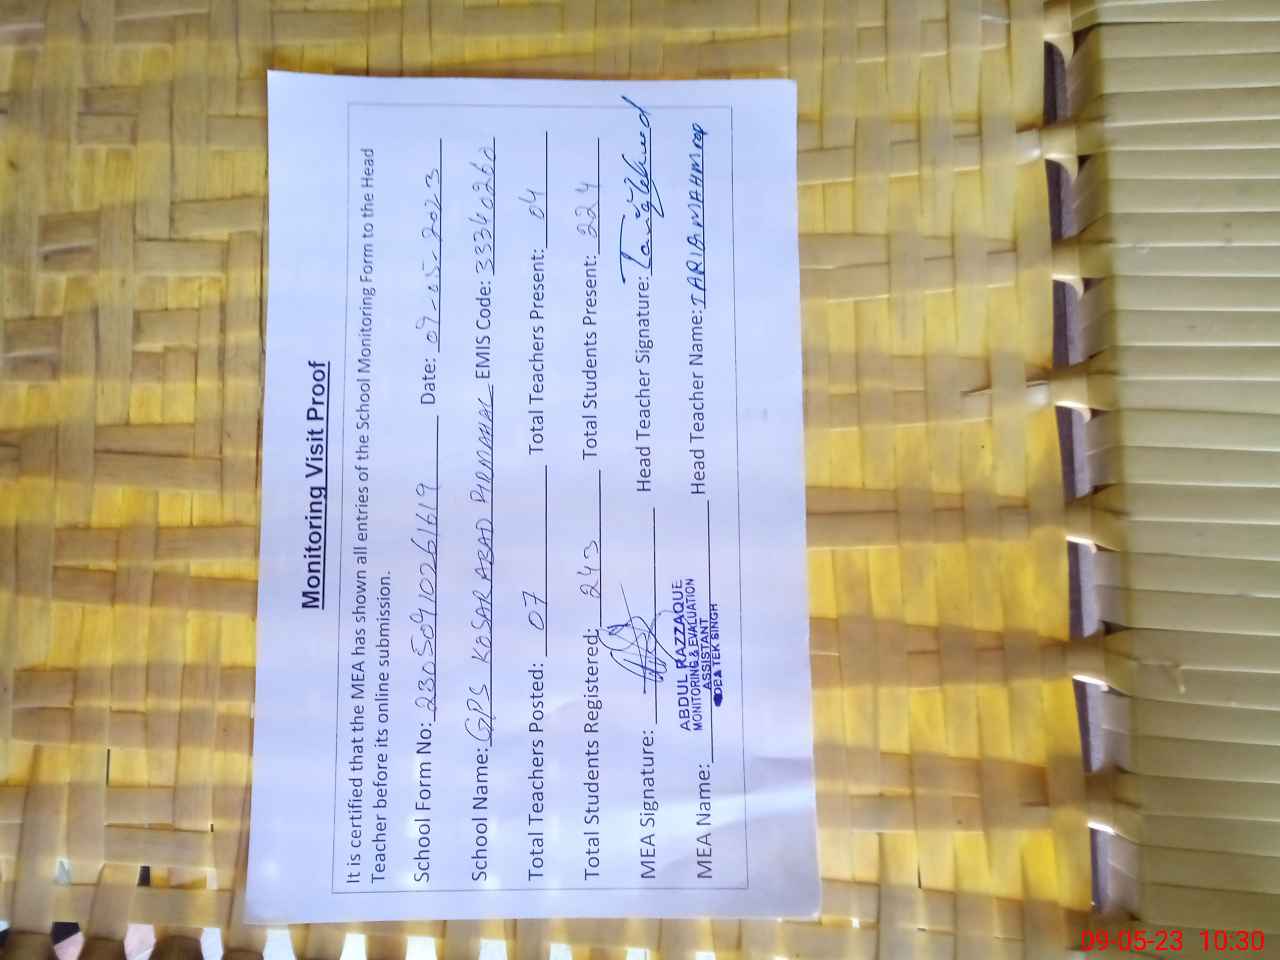 Monitoring Visit Proof
It is certified that the MEA has shown all entries of the School Monitoring Form to the Head
Teacher before its online submission.
School Form No: 23050910261619 Date: 09-05-2023
School Name: GPS KOSAR ABAD PIRMAHAL EMIS Code: 33340260
Total Teachers Posted: 07 Total Teachers Present: 04
Total Students Registered: 243 Total Students Present: 224
MEA Signature: Head Teacher Signature:
MEA Name: Head Teacher Name: TARIQ MAHMOOD
ABDUL RAZZAQUE
MONITORING & EVALUATION
ASSISTANT
TEK SINGH
09-05-23 10:30